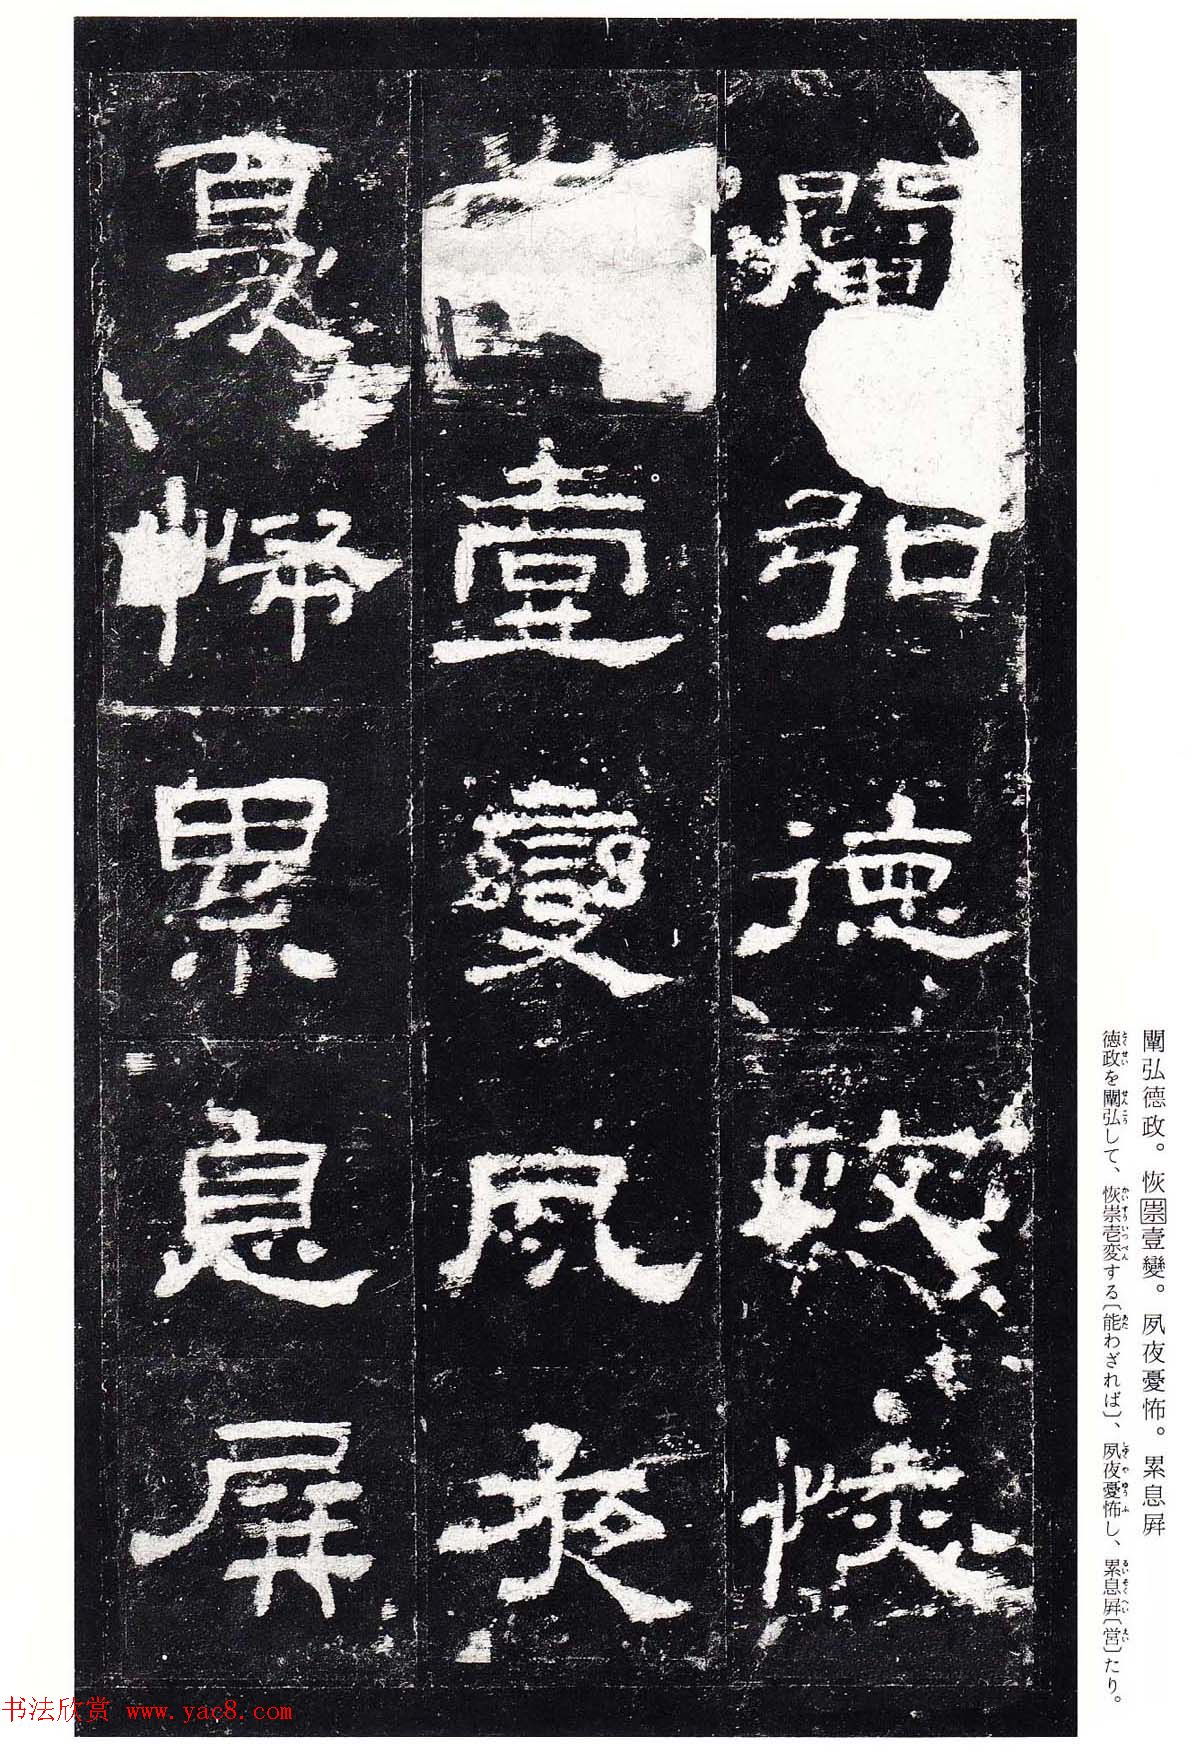 闡弘德政。恢崇壹變。夙夜憂怖。累息屛
德政を闡弘して、恢崇壱変する〔能わざれば〕、夙夜憂怖し、累息屛〔営〕たり。
闡弘德政恢
壹變夙夜
憂怖累息屛
书法欣赏 www.yac8.com